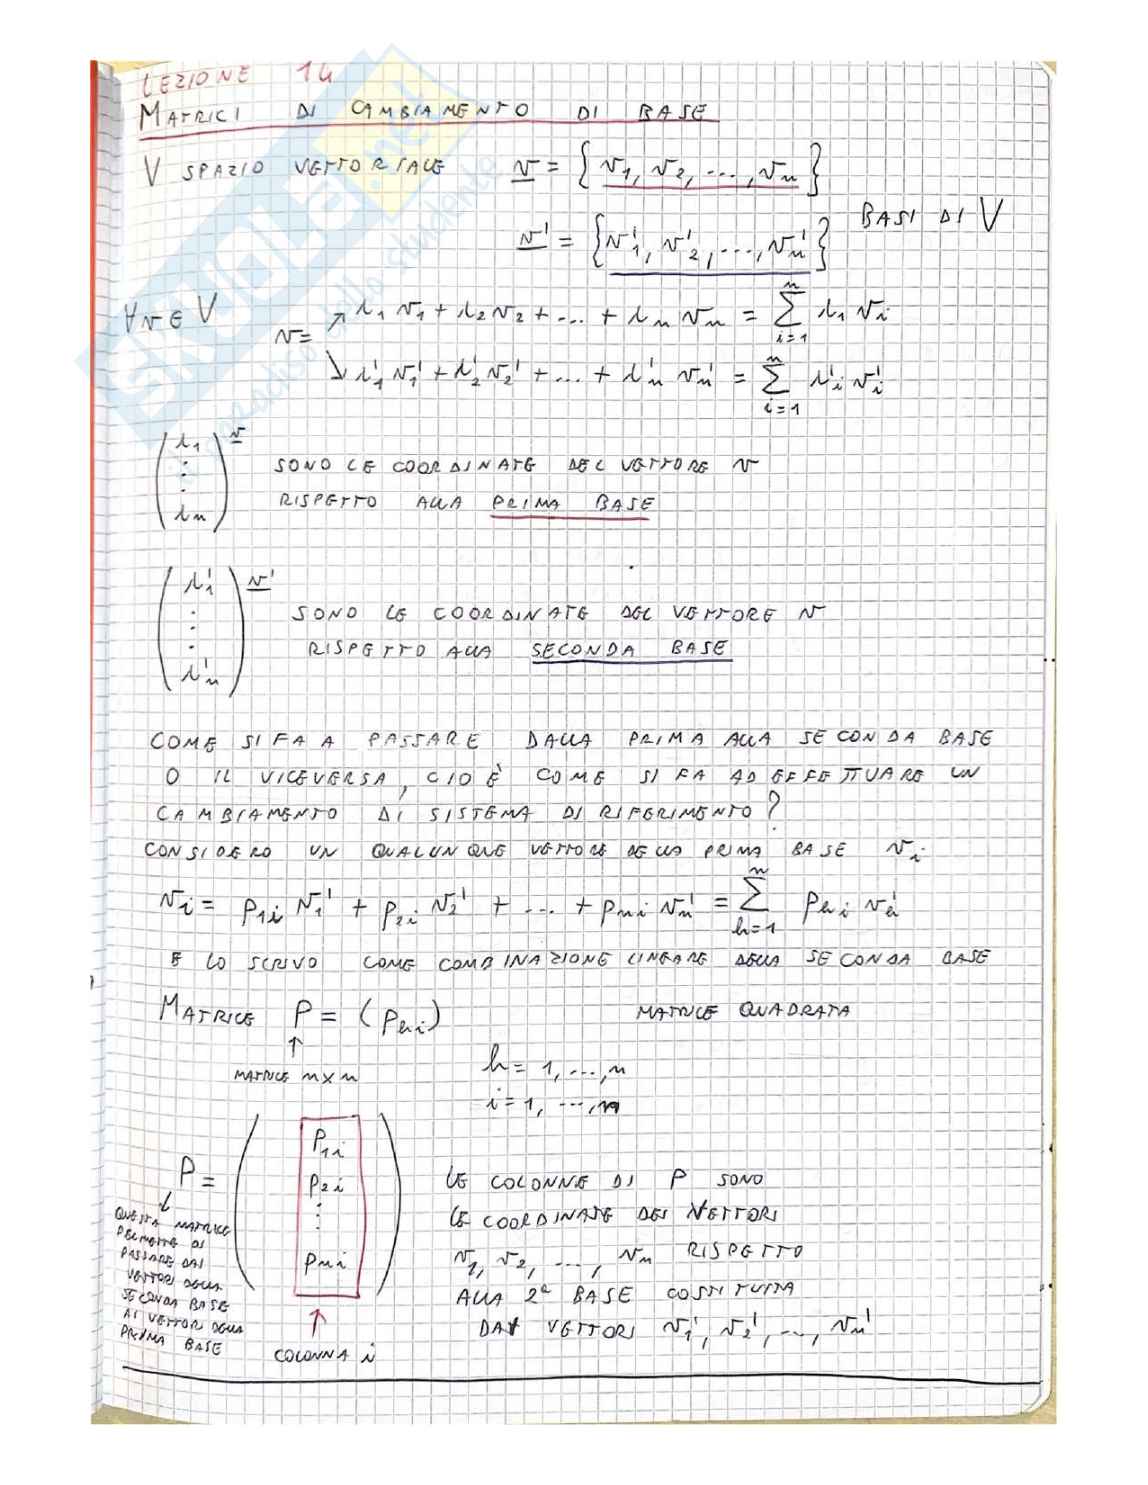 LEZIONE 14
MATRICI DI CAMBIAMENTO DI BASE
V SPAZIO VETTORIALE v = {v₁, v₂, ..., vₙ}
v' = {v'₁, v'₂, ..., v'ₙ} BASI DI V
∀v ∈ V v = ↗ λ₁v₁ + λ₂v₂ + ... + λₙvₙ = Σⁿᵢ₌₁ λ₁vᵢ
↘ λ'₁v'₁ + λ'₂v'₂ + ... + λ'ₙv'ₙ = Σⁿᵢ₌₁ λ'ᵢv'ᵢ
(λ₁ ⋮ λₙ)^v SONO LE COORDINATE DEL VETTORE v
RISPETTO ALLA PRIMA BASE
(λ'₁ ⋮ λ'ₙ)^v' SONO LE COORDINATE DEL VETTORE v
RISPETTO ALLA SECONDA BASE
COME SI FA A PASSARE DALLA PRIMA ALLA SECONDA BASE
O IL VICEVERSA, CIOÈ COME SI FA AD EFFETTUARE UN
CAMBIAMENTO DI SISTEMA DI RIFERIMENTO?
CONSIDERO UN QUALUNQUE VETTORE DELLA PRIMA BASE vᵢ
vᵢ = p₁ᵢ v₁' + p₂ᵢ v₂' + ... + pₙᵢ vₙ' = Σⁿₕ₌₁ pₕᵢ vₕ'
E LO SCRIVO COME COMBINAZIONE LINEARE DELLA SECONDA BASE
MATRICE P = (pₕᵢ) MATRICE QUADRATA
↑
MATRICE n×n
h = 1, ..., n
i = 1, ..., n
P = (p₁ᵢ p₂ᵢ ⋮ pₙᵢ)
↑
COLONNA i
QUESTA MATRICE
PERMETTE DI
PASSARE DAI
VETTORI DELLA
SECONDA BASE
AI VETTORI DELLA
PRIMA BASE
LE COLONNE DI P SONO
LE COORDINATE DEI VETTORI
v₁, v₂, ..., vₙ RISPETTO
ALLA 2ª BASE COSTITUITA
DAI VETTORI v₁', v₂', ..., vₙ'
SKUOLA.net